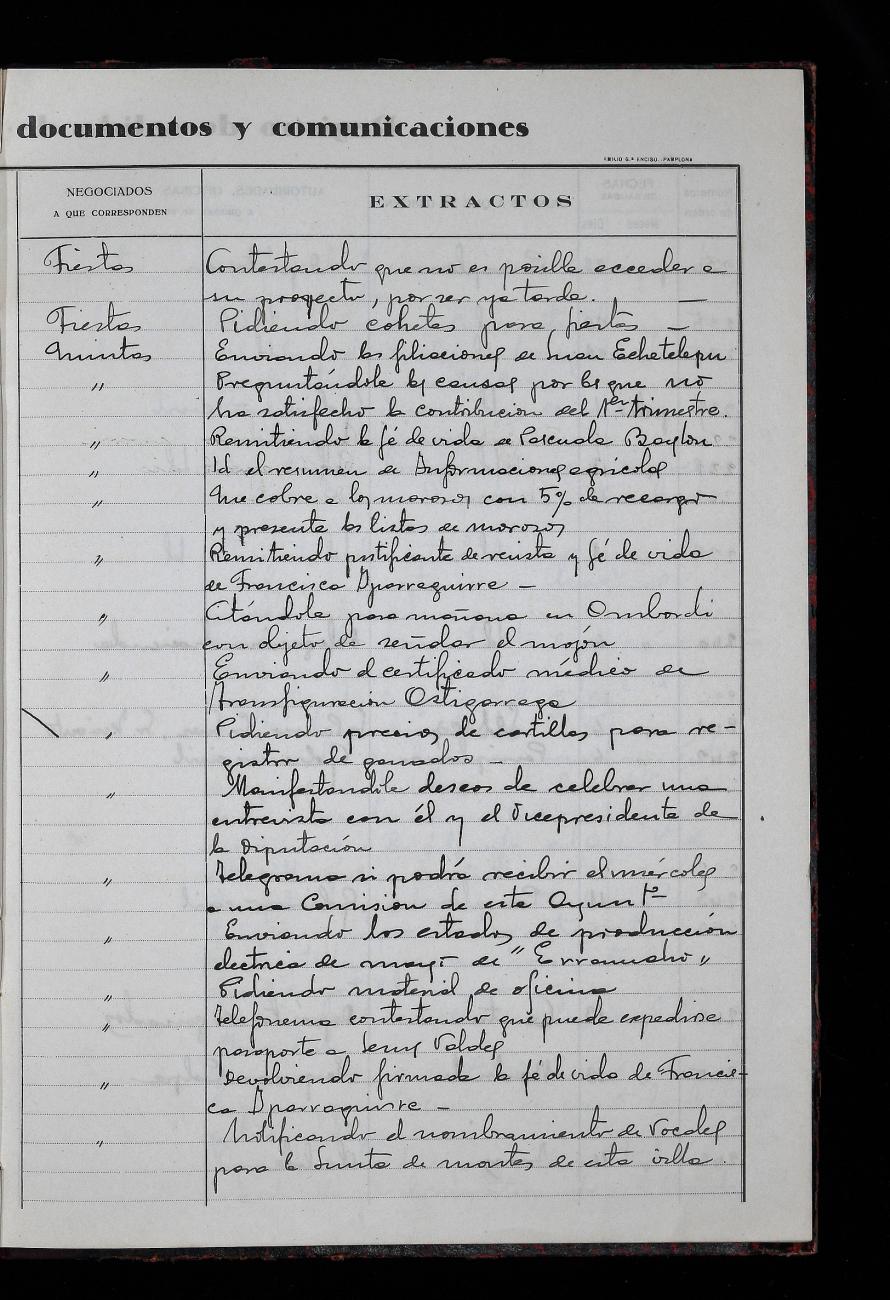 documentos y comunicaciones
EMILIO G.ª ENCISO.-PAMPLONA
NEGOCIADOS
A QUE CORRESPONDEN
EXTRACTOS
Fiestas Contestando que no es posible acceder a
su proyecto, por ser ya tarde. —
Fiestas Pidiendo cohetes para fiestas —
Quintas Enviando las filiaciones de Juan Echetelepu
" Preguntándole las causas por las que no
ha satisfecho la contribucion del 1er trimestre.
" Remitiendo la fé de vida de Pascuala Baylon
" Id el resumen de Informaciones agricolas
" Que cobre a los morosos con 5% de recargo
y presente las listas de morosos
" Remitiendo justificante de revista y fé de vida
de Francisca Yparraguirre —
" Citándole para mañana en Ombordi
con objeto de señalar el mojón
" Enviando el certificado médico de
Transfiguración Ostigarraga
" Pidiendo precios de cartillas para re-
gistro de ganados —
" Manifestandole deseos de celebrar una
entrevista con él y el Vicepresidente de
la Diputación
" Telegrama si podrá recibir el miércoles
a una Comision de este Ayunto
" Enviando los estados de producción
electrica de mayo de "Erramacho"
" Pidiendo material de oficina
" Telefonema contestando que puede expedirse
pasaporte a Jesus Valdes
" Devolviendo firmada la fé de vida de Francis-
ca Yparraguirre —
" Notificando el nombramiento de Vocales
para la Junta de montes de esta villa.